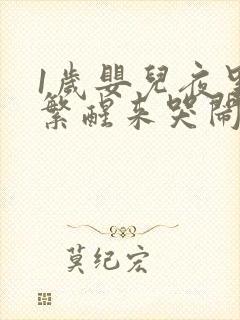 1歲嬰兒夜
繁醒来哭鬧
莫纪宏